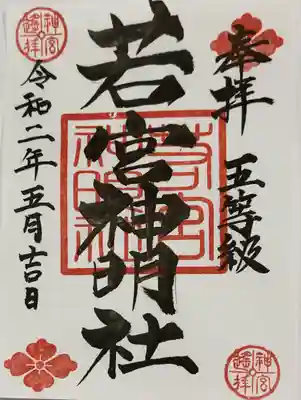 奉拝
五等級
若宮神明社
若宮
神明社
令和二年五月吉日
神宮
遙拝
神宮
遙拝